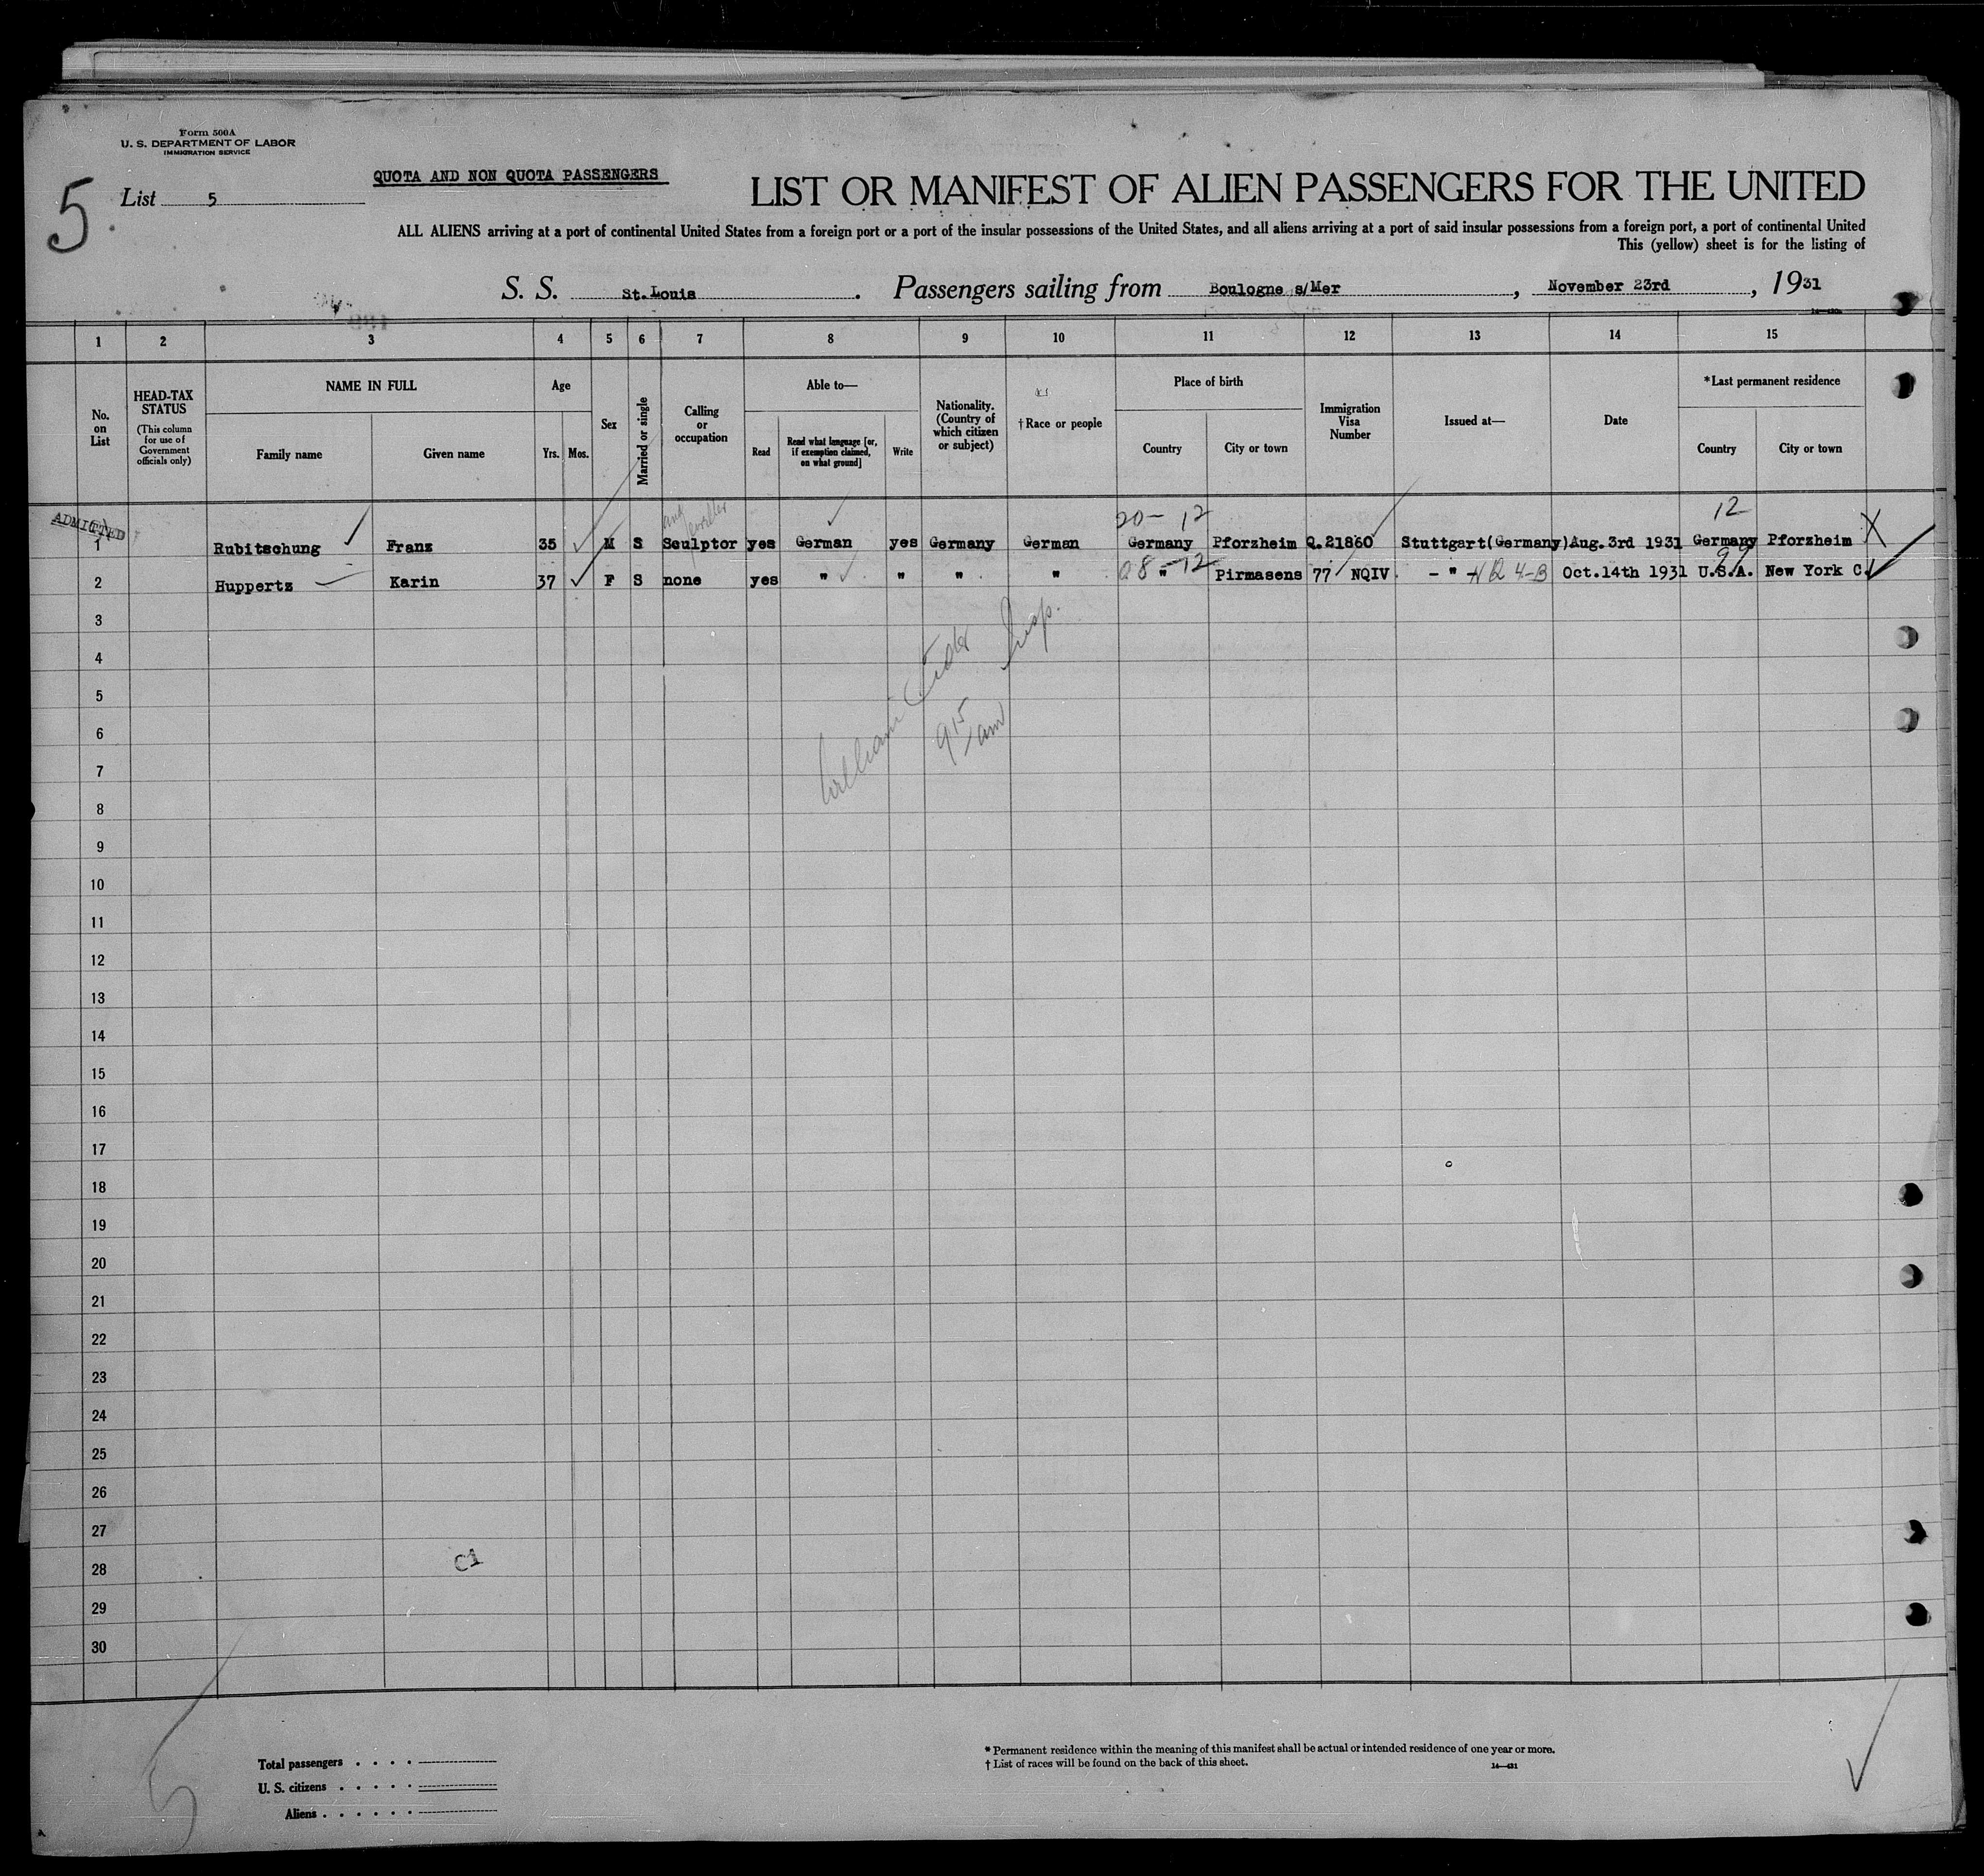 Form 500A
U. S. DEPARTMENT OF LABOR
IMMIGRATION SERVICE
5
List 5
QUOTA AND NON QUOTA PASSENGERS
LIST OR MANIFEST OF ALIEN PASSENGERS FOR THE UNITED
ALL ALIENS arriving at a port of continental United States from a foreign port or a port of the insular possessions of the United States, and all aliens arriving at a port of said insular possessions from a foreign port, a port of continental United
This (yellow) sheet is for the listing of
S. S. St.Louis . Passengers sailing from Boulogne s/Mer , November 23rd , 1931
1 2 3 4 5 6 7 8 9 10 11 12 13 14 15
No. on List
HEAD-TAX STATUS (This column for use of Government officials only)
NAME IN FULL
Family name Given name
Age
Yrs. Mos.
Sex
Married or single
Calling or occupation
Able to—
Read Read what language [or, if exemption claimed, on what ground] Write
Nationality. (Country of which citizen or subject)
†Race or people
Place of birth
Country City or town
Immigration Visa Number
Issued at—
Date
*Last permanent residence
Country City or town
ADMITTED
and jeweller
20-12
12
1 Rubitschung Franz 35 M S Sculptor yes German yes Germany German Germany Pforzheim Q.21860 Stuttgart(Germany) Aug.3rd 1931 Germany Pforzheim X
28-12
99
2 Huppertz Karin 37 F S none yes " " " " " Pirmasens 77 NQIV - " - 4-B Oct.14th 1931 U.S.A. New York C.
3
William Insp.
4
5
6
9 15 am
7
8
9
10
11
12
13
14
15
16
17
18
19
20
21
22
23
24
25
26
27
28
C1
29
30
Total passengers . . . .
U. S. citizens . . . . .
Aliens . . . . . .
* Permanent residence within the meaning of this manifest shall be actual or intended residence of one year or more.
† List of races will be found on the back of this sheet.
14—421